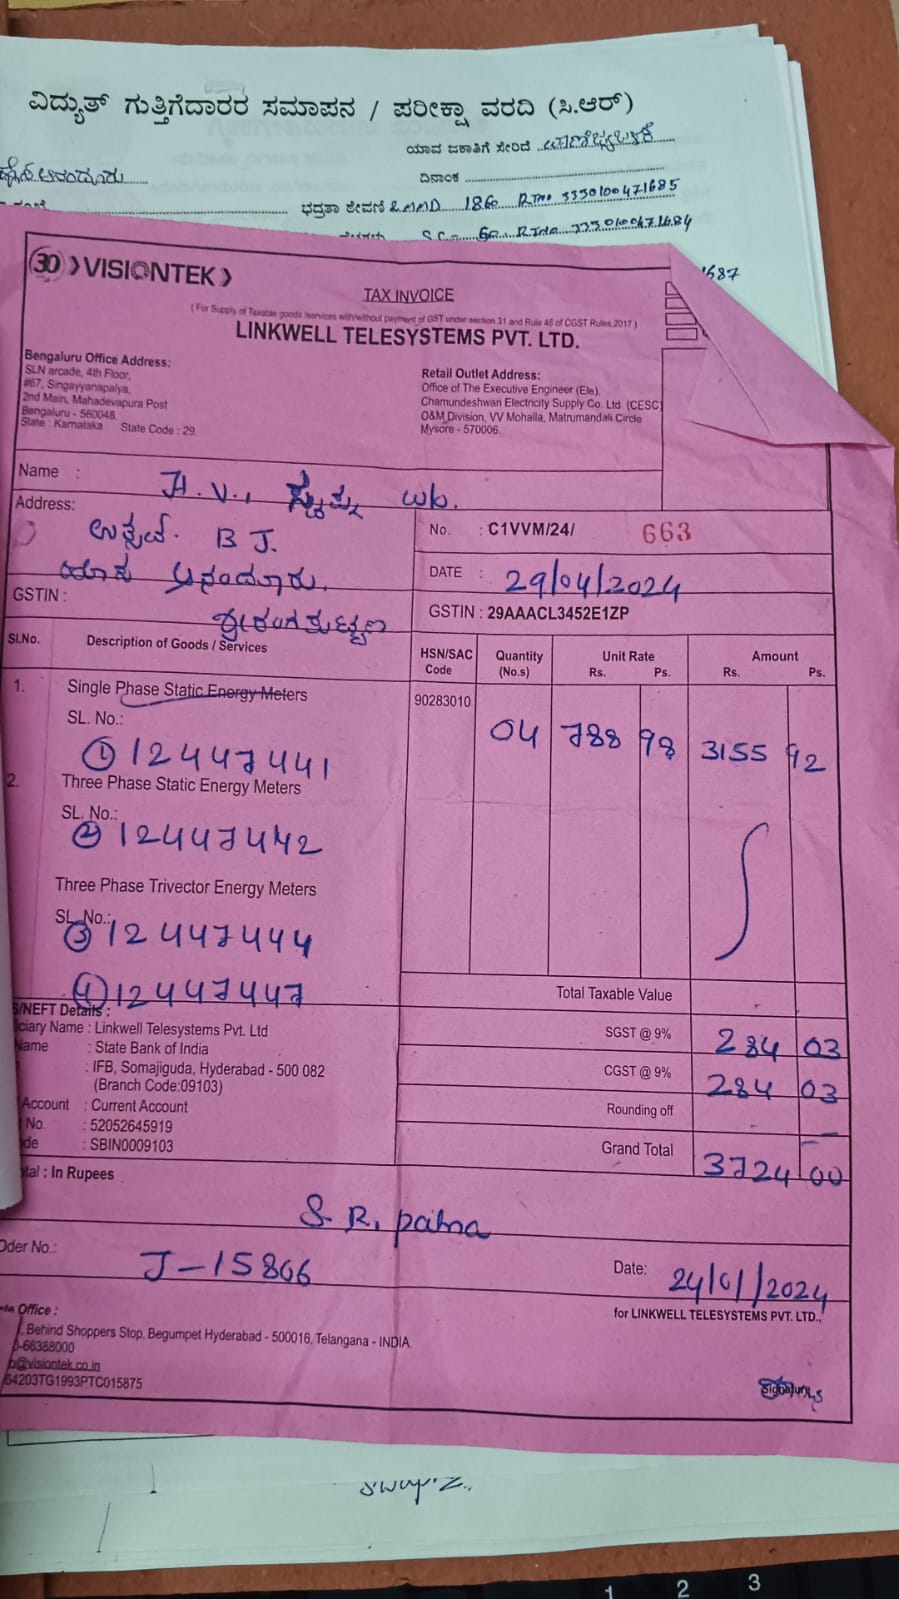 ವಿದ್ಯುತ್ ಗುತ್ತಿಗೆದಾರರ ಸಮಾಪನ / ಪರೀಕ್ಷಾ ವರದಿ (ಸಿ.ಆರ್)
ಯಾವ ಜಕಾತಿಗೆ ಸೇರಿದೆ
ದಿನಾಂಕ
ಭದ್ರತಾ ಠೇವಣಿ 180 3330100471685
1687
30 VISIONTEK
TAX INVOICE
( For Supply of Taxable goods /services with/without payment of GST under section 31 and Rule 46 of CGST Rules,2017 )
LINKWELL TELESYSTEMS PVT. LTD.
Bengaluru Office Address:
SLN arcade, 4th Floor,
#67, Singayyanapalya,
2nd Main, Mahadevapura Post
Bengaluru - 560048.
State : Karnataka State Code : 29.
Retail Outlet Address:
Office of The Executive Engineer (Ele),
Chamundeshwari Electricity Supply Co. Ltd. (CESC)
O&M Division, VV Mohalla, Matrumandali Circle
Mysore - 570006.
Name :
Address:
B J.
No. : C1VVM/24/ 663
DATE : 29/04/2024
GSTIN :
GSTIN : 29AAACL3452E1ZP
Sl.No. Description of Goods / Services HSN/SAC Code Quantity (No.s) Unit Rate Rs. Ps. Amount Rs. Ps.
1. Single Phase Static Energy Meters 90283010 04 788 98 3155 92
SL. No.:
① 12447441
2. Three Phase Static Energy Meters
SL. No.:
② 12447442
Three Phase Trivector Energy Meters
SL. No.:
③ 12447444
④ 12447447
Total Taxable Value
SGST @ 9% 284 03
CGST @ 9% 284 03
Rounding off —
Grand Total 3724 00
S/NEFT Details :
ciary Name : Linkwell Telesystems Pvt. Ltd
Name : State Bank of India
: IFB, Somajiguda, Hyderabad - 500 082
(Branch Code:09103)
Account : Current Account
No. : 52052645919
de : SBIN0009103
tal : In Rupees
S. R. patna
Oder No.: J-15806
Date: 24/01/2024
for LINKWELL TELESYSTEMS PVT. LTD.,
te Office :
Behind Shoppers Stop, Begumpet Hyderabad - 500016, Telangana - INDIA.
0-66388000
b@visiontek.co.in
64203TG1993PTC015875
Signature
1 2 3